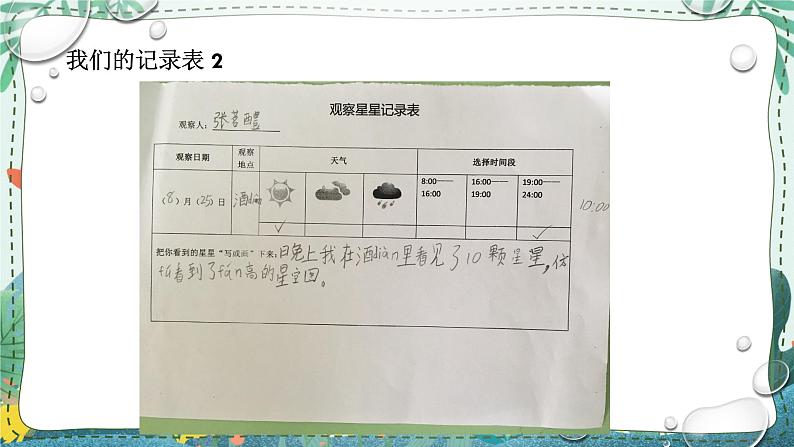 我们的记录表 2
观察星星记录表
观察人：张
观察日期 观察地点 天气 选择时间段
8:00——16:00 16:00——19:00 19:00——24:00
（8）月（25）日 酒diàn 10:00
✓ ✓
把你看到的星星“写或画”下来：晚上我在酒diàn里看见了10颗星星，仿
fú看到了fán高的星空图。